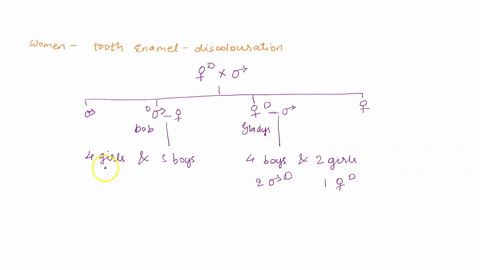 Women - tooth Enamel - discolouration
♀D × ♂
♂ D♂ - ♀ ♀D - ♂ ♀
bob Gladys
4 girls & 3 boys 4 boys & 2 girls
2 ♂D 1 ♀D